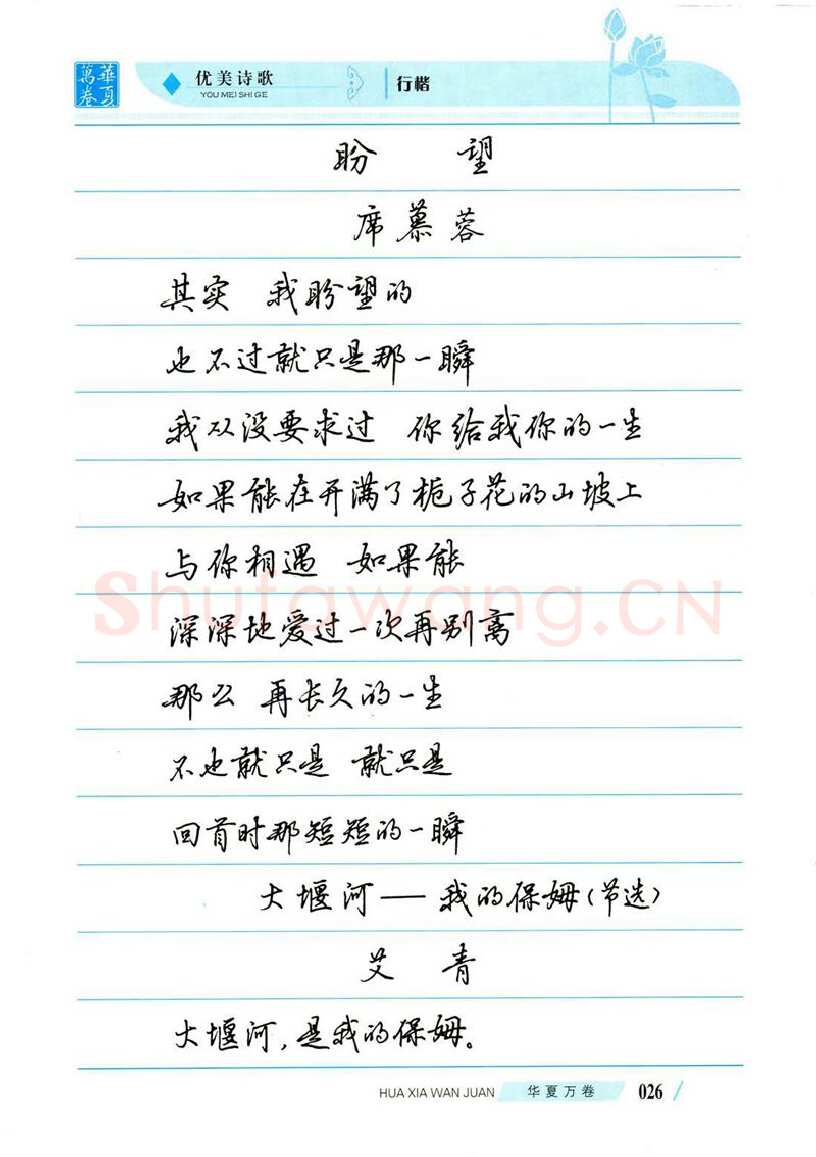 華夏萬卷
优美诗歌 行楷
YOU MEI SHI GE
盼 望
席慕蓉
其实 我盼望的
也不过就只是那一瞬
我从没要求过 你给我你的一生
如果能在开满了栀子花的山坡上
与你相遇 如果能
深深地爱过一次再别离
那么 再长久的一生
不也就只是 就只是
回首时那短短的一瞬
大堰河——我的保姆(节选)
艾 青
大堰河,是我的保姆。
HUA XIA WAN JUAN 华夏万卷 026
Shufawang.CN